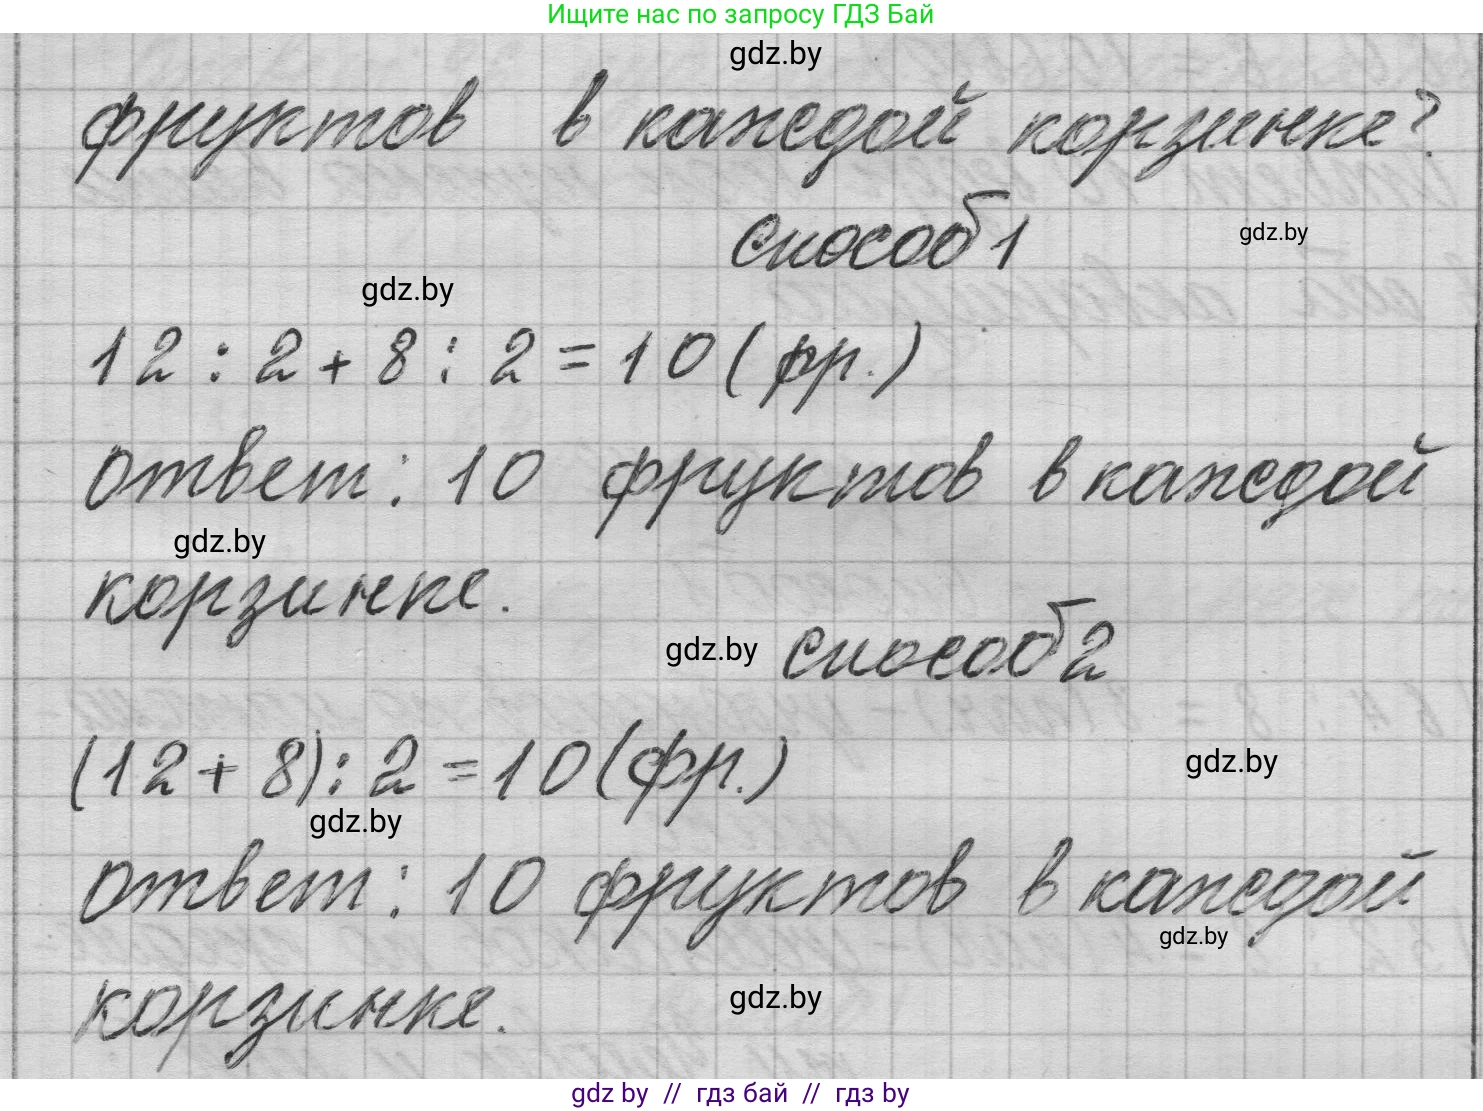 Ищите нас по запросу ГДЗ Бай
gdz.by
фруктов в каждой корзинке?
способ 1
gdz.by
gdz.by
12 : 2 + 8 : 2 = 10 (фр.)
ответ: 10 фруктов в каждой
gdz.by
корзинке.
gdz.by
способ 2
(12 + 8) : 2 = 10 (фр.)
gdz.by
gdz.by
ответ: 10 фруктов в каждой
gdz.by
корзинке.
gdz.by
gdz by // гдз бай // гдз by